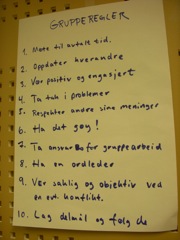 GRUPPEREGLER
1. Møte til avtalt tid.
2. Oppdater hverandre
3. Vær positiv og engasjert
4. Ta tak i problemer
5. Respekter andre sine meninger
6. Ha det gøy!
7. Ta ansvar for gruppearbeid
8. Ha en ordleder
9. Vær saklig og objektiv ved
en evt. konflikt.
10. Lag delmål og følg de